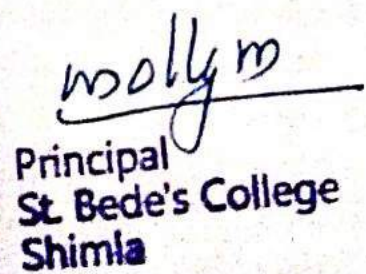 molly m
Principal
St. Bede's College
Shimla